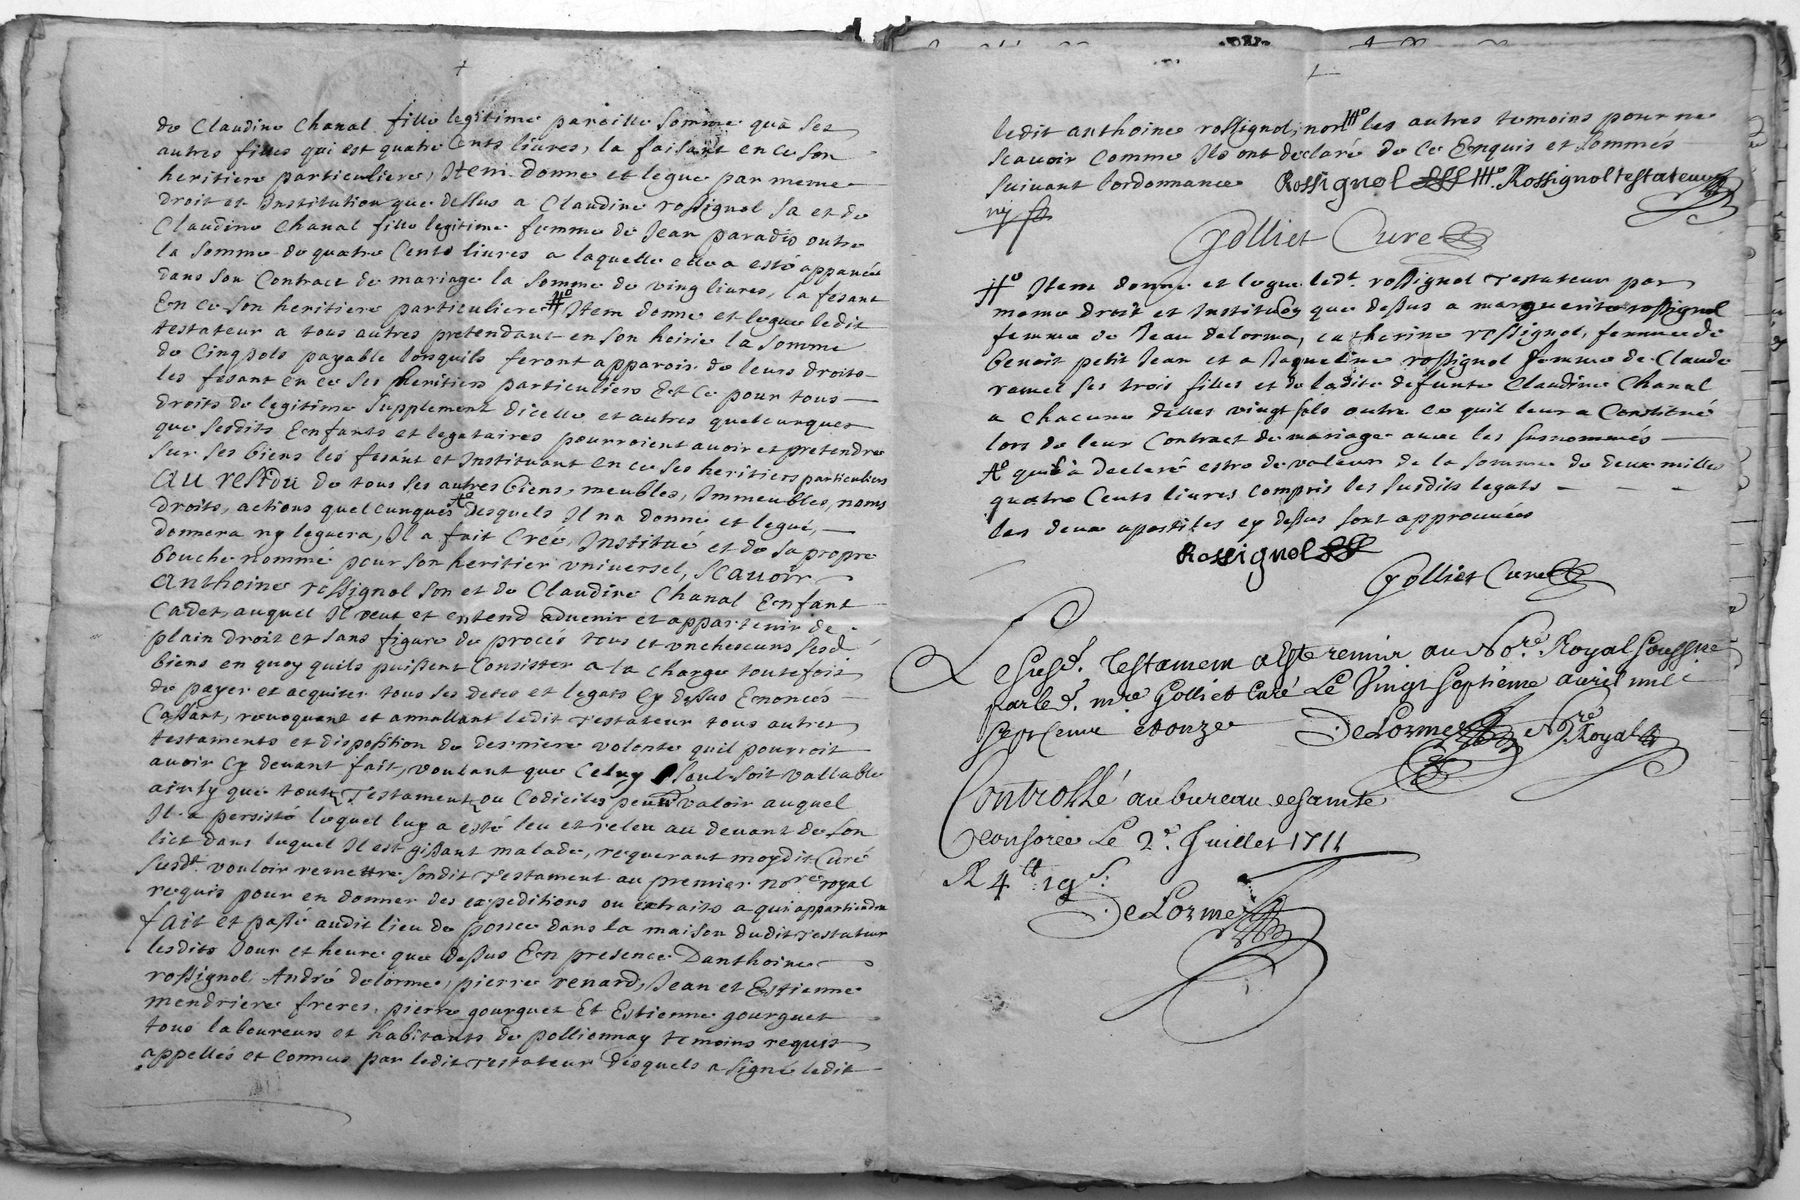 de Claudine Chanal fille legitime pareille somme qua ses
autres filles qui est quatre Cents livres, la faisant en ce son
heritiere particuliere, Item donne et legue par meme
droit et Institution que dessus a Claudine rossignol sa et de
Claudine Chanal fille legitime femme de Jean paradis outre
la somme de quatre Cents livres a laquelle elle a esté appanée
dans son Contract de mariage la somme de ving livres, la fesant
En ce son heritiere particuliere Item donne et legue ledit
testateur a tous autres pretendant en son hoirie la somme
de Cinq sols payable lorsquils feront apparoir de leurs droits
les fesant en ce ses heritiers particuliers Et Ce pour tous
droits de legitime supplement dicelle et autres quelcunques
que sesdits Enfants et legataires pourroient avoir et pretendre
sur ses biens les fesant et Instituant en ce ses heritiers particuliers
Au residu de tous ses autres biens, meubles, Immeubles, noms
droits, actions quelcunques desquels Il na donné et legué,
donnera ny leguera, Il a fait Créé, Institué et de sa propre
bouche nommé pour son heritier universel, scavoir
Anthoine rossignol son et de Claudine Chanal Enfant
Cadet, auquel Il veut et entend advenir et appartenir de
plain droit et sans figure de procés tous et uncheseuns sesd
biens en quoy quils puissent Consister a la charge toutefois
de payer et acquiter tous ses detes et legats Cy dessus Enoncés
Cassant, revoquant et annullant ledit testateur tous autres
testaments et disposition de derniere volonte quil pourroit
avoir Cy devant fait, voulant que Celuy seul soit vallable
ainsy que tout Testament ou Codiciles valoir auquel
Il a persisté lequel luy a esté leu et releu au devant de son
lict dans lequel Il est gissant malade, requerant moydit Curé
susdt vouloir remettre sondit testament au premier nore royal
requis pour en donner des expeditions ou extraits a qui appartiendra
fait et passé audit lieu de ponce dans la maison dudit testateur
lesdits Jour et heure que dessus En presence Danthoine
rossignol André delorme, pierre renard, Jean et Estienne
mendriere freres, pierre gourguet Et Estienne gourguet
tous laboureurs et habitants de pollionnay temoins requis
appellés et Connus par ledit testateur desquels a signé ledit
ledit anthoine rossignol, non les autres temoins pour ne
scavoir Comme Ils ont declaré de Ce Enquis et sommés
suivant lordonnance Rossignol Rossignol testateur
Golliet Curé
Ho Item donne et legue ledt. rossignol testateur par
meme droit et Institution que dessus a marguerite rossignol
femme de Jean delorme, catherine rossignol, femme de
benoit petit Jean et a Jaqueline rossignol femme de Claude
ramel ses trois filles et de ladite defunte Claudine Chanal
a Chacune delles vingt sols outre ce quil leur a Constitué
lors de leur Contract de mariage avec les susnommés
Ao quil à declaré estre de valeur de la somme de deux milles
quatre Cents livres compris les susdits legats
les deux apostiles cy dessus sont approuvées
Rossignol
Golliet Curé
Le susd. Testament a este remis au Nore. Royal soussigné
par led. mre Golliet Curé Le Vingt septieme avril mil
sept cent et onze DeLorme Nre Royal
Controllé au bureau de sainte
Consorce Le 2e. Juillet 1711
R 4 lt 19 s.
DeLorme